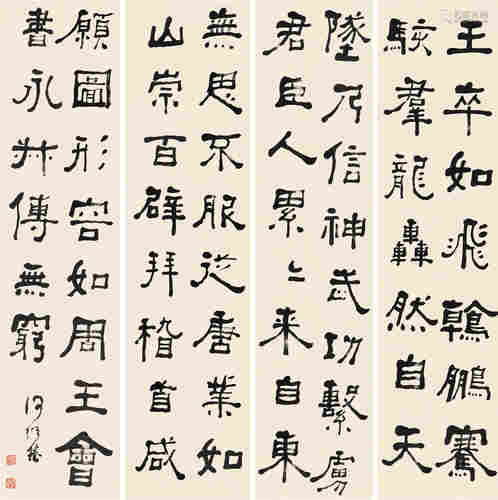 王卒如飛鶾鵬騫
駭羣龍轟然自天
墜乃信神武功繫虜
君臣人累〻來自東
無思不服從唐業如
山崇百辟拜稽首咸
願圖形容如周王會
書永傳無窮